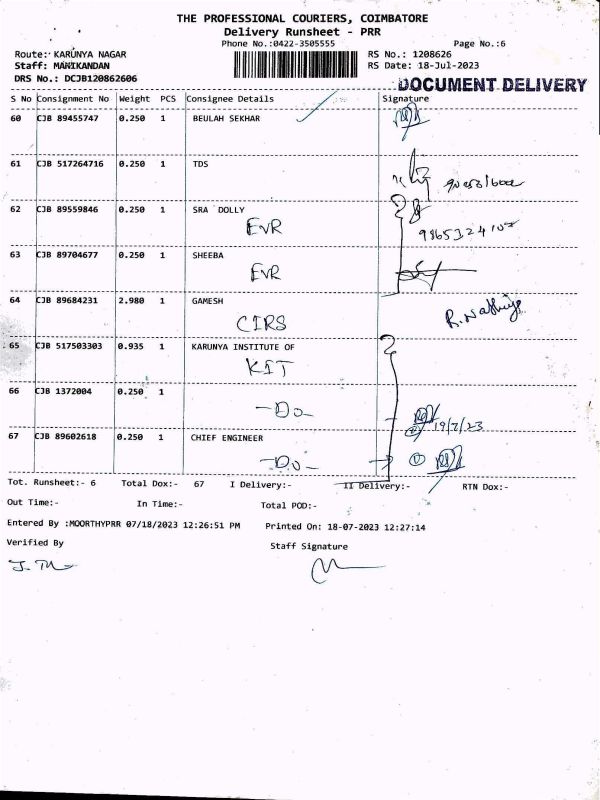 THE PROFESSIONAL COURIERS, COIMBATORE
Delivery Runsheet - PRR
Phone No.:0422-3505555 Page No.:6
Route:- KARUNYA NAGAR RS No.: 1208626
Staff: MANIKANDAN RS Date: 18-Jul-2023
DRS No.: DCJB120862606
DOCUMENT DELIVERY
S No Consignment No Weight PCS Consignee Details Signature
60 CJB 89455747 0.250 1 BEULAH SEKHAR
61 CJB 517264716 0.250 1 TDS
62 CJB 89559846 0.250 1 SRA DOLLY
EVR
63 CJB 89704677 0.250 1 SHEEBA
EVR
64 CJB 89684231 2.980 1 GAMESH
CIRS
R. Nathiya
65 CJB 517503303 0.935 1 KARUNYA INSTITUTE OF
KIT
66 CJB 1372004 0.250 1
-Do-
19/7/23
67 CJB 89602618 0.250 1 CHIEF ENGINEER
-Do-
Tot. Runsheet:- 6 Total Dox:- 67 I Delivery:- II Delivery:- RTN Dox:-
Out Time:- In Time:- Total POD:-
Entered By :MOORTHYPRR 07/18/2023 12:26:51 PM Printed On: 18-07-2023 12:27:14
Verified By Staff Signature